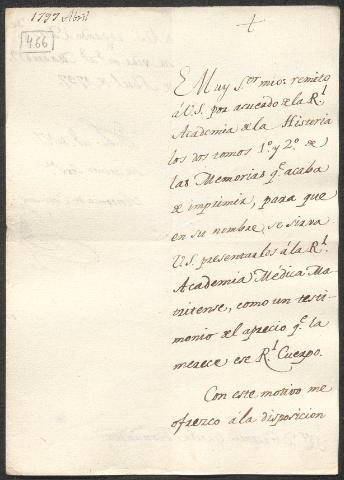 1797 Abril
466
Muy S.or mio: remito
á V.S. por acuerdo de la R.l
Academia de la Historia
los dos tomos 1.º y 2.º de
las Memorias q.e acaba
de imprimir, para que
en su nombre se sirva
V.S. presentarlos á la R.l
Academia Médica Ma-
tritense, como un testi-
monio del aprecio q.e la
merece ese R.l Cuerpo.
Con este motivo me
ofrezco á la disposicion